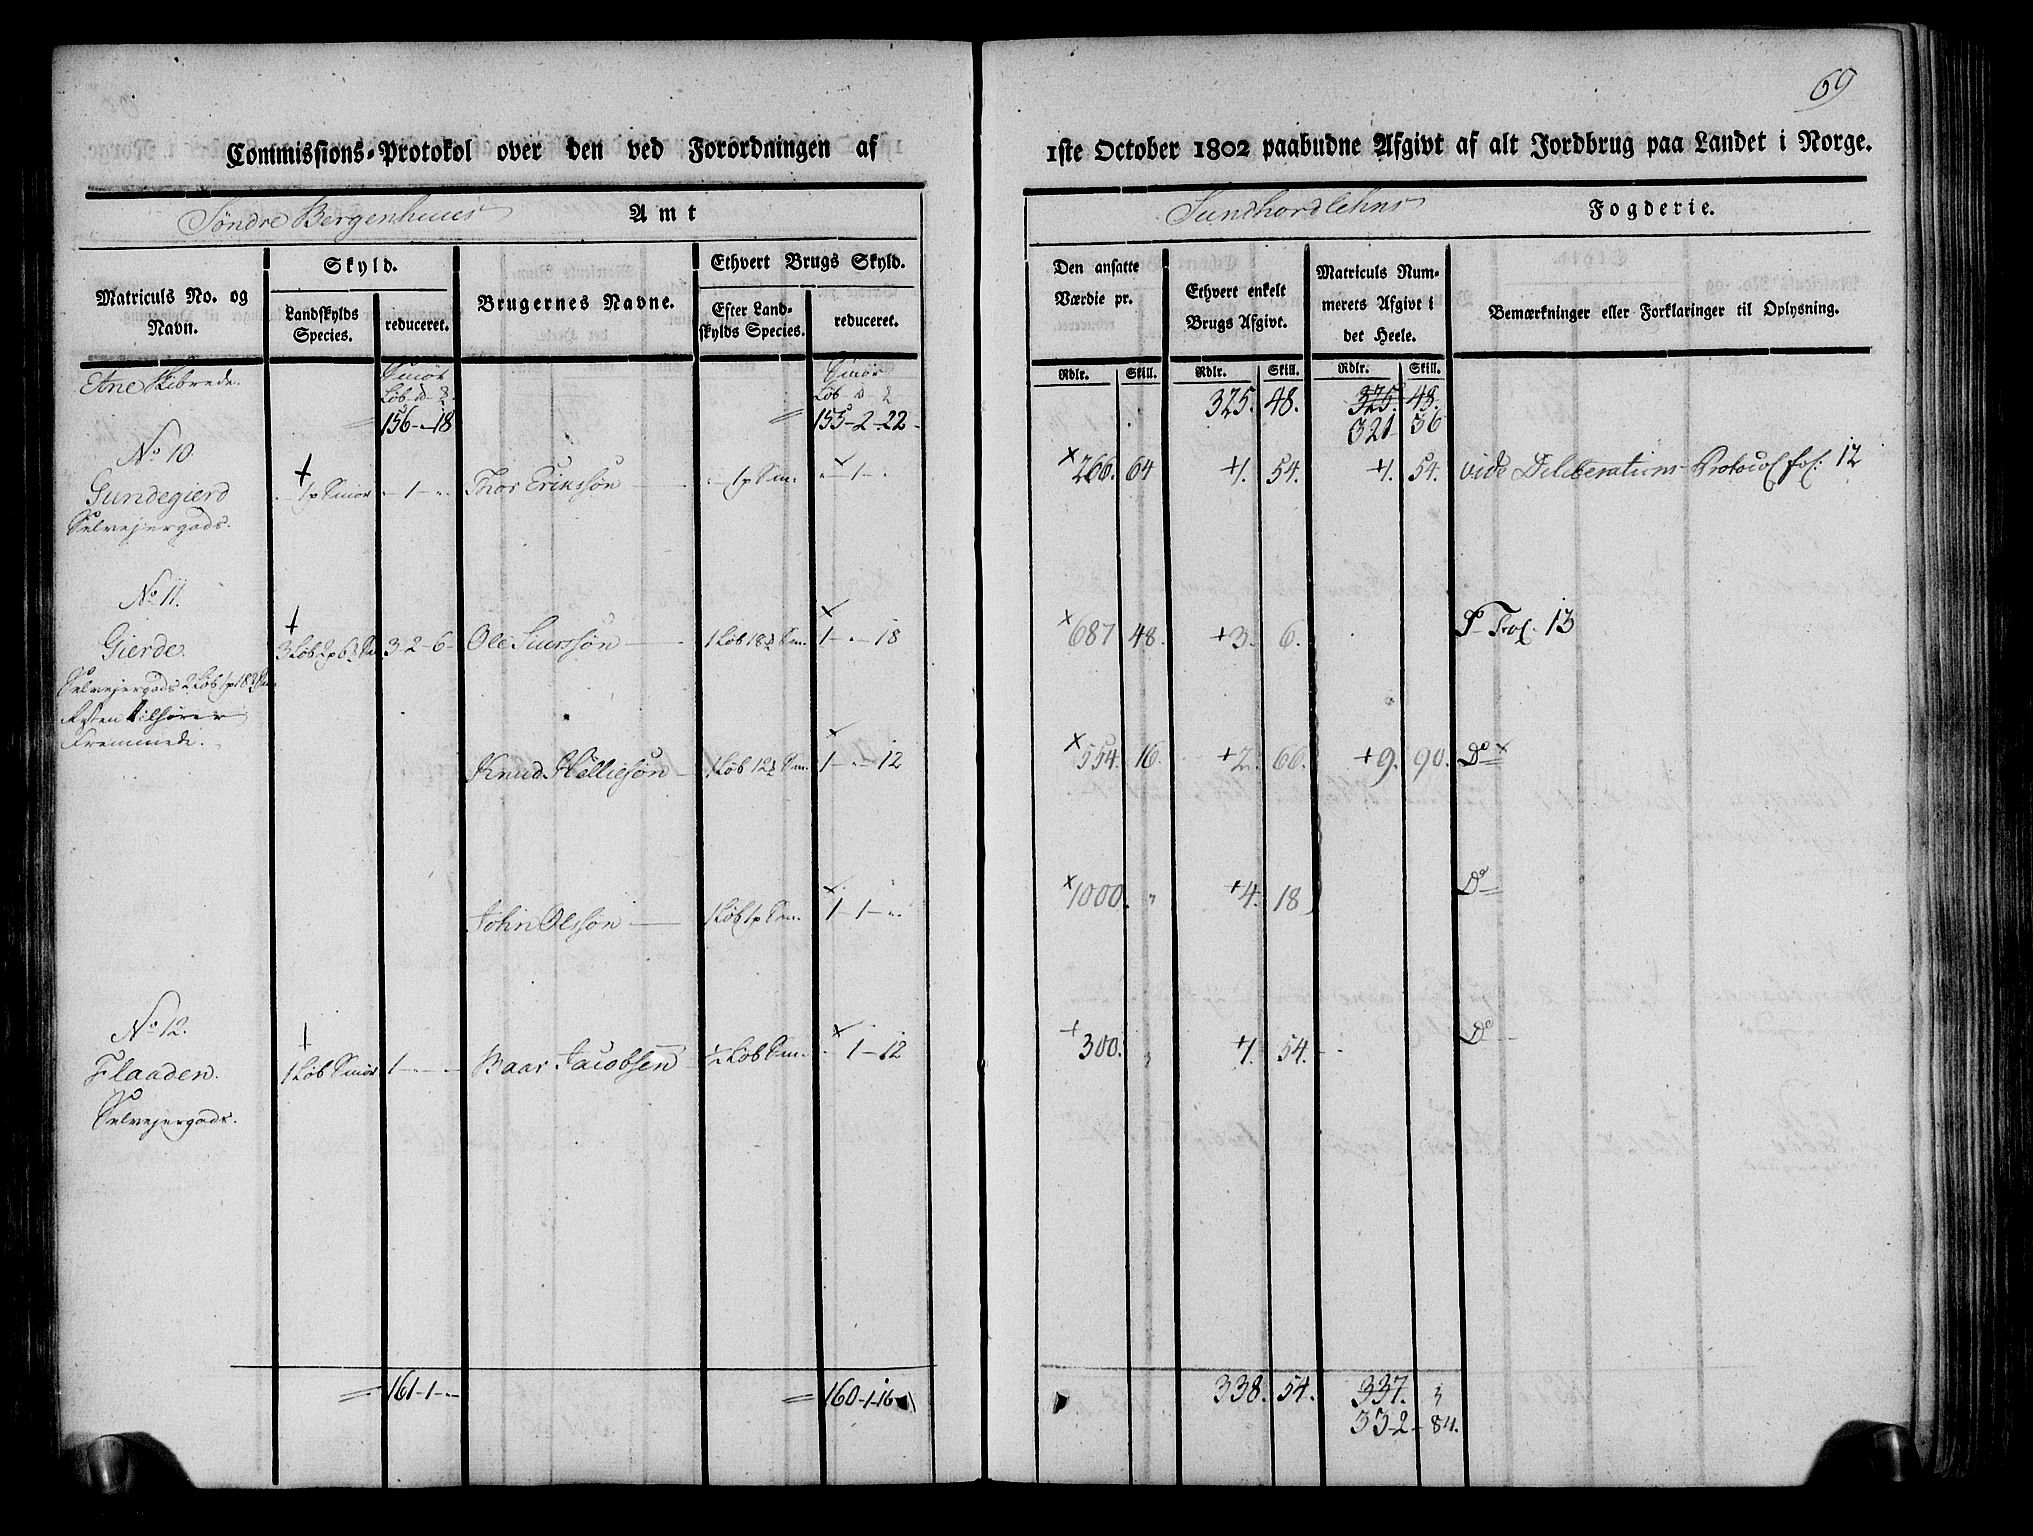 69
Commissions-Protokol over den ved Forordningen af 1ste October 1802 paabudne Afgivt af alt Jordbrug paa Landet i Norge.
Søndre Bergenhuus Amt
Sundhordlehns Fogderie.
Matriculs No. og Navn.
Skyld.
Landskylds Species.
reduceret.
Brugernes Navne.
Ethvert Brugs Skyld.
Efter Landskylds Species.
reduceret.
Den ansatte Værdie pr.
Ethvert enkelt Brugs Afgivt.
Matriculs Nummerets Afgivt i det Heele.
Bemærkninger eller Forklaringer til Oplysning.
Rdlr. Skill. Rdlr. Skill. Rdlr. Skill.
Etne Skibrede. Smör Smör
Löb
156 - 18 155 - 2 - 22 325. 48. 325. 48.
321 - 36
No 10.
Gundegierd 1 p Smör - 1 - Thor Erikssøn 1 p Sm. - 1 - 266. 64 1. 54. 1. 54. vide Deliberations Protocol fol: 12
Selvejergods.
No 11.
Gierde. 3 Löb 2 p 6 3-2-6 Ole 1 Löb 18 Sm. 1 - - 18 687 48. 3. 6. fol. 13
Selvejergods 2 Löb 1 p 18
Resten tilhører
Fremmede.
Knud Helliesøn 1 Löb 12 Sm. 1 - - 12 554. 16. 2. 66. 9. 90. Do
John Olssøn 1 Löb 1 p Sm. 1 - 1 - 1000. " 4. 18 Do
No 12.
Flaaden. 1 Löb Smör 1 - - Baar Jacobsen 1/2 Löb Sm. - 1 - 12 300. " 1. 54. Do
Selvejergods.
161 - 1 - 160 - 1 - 16 338. 54. 337. 3
332 - 84.